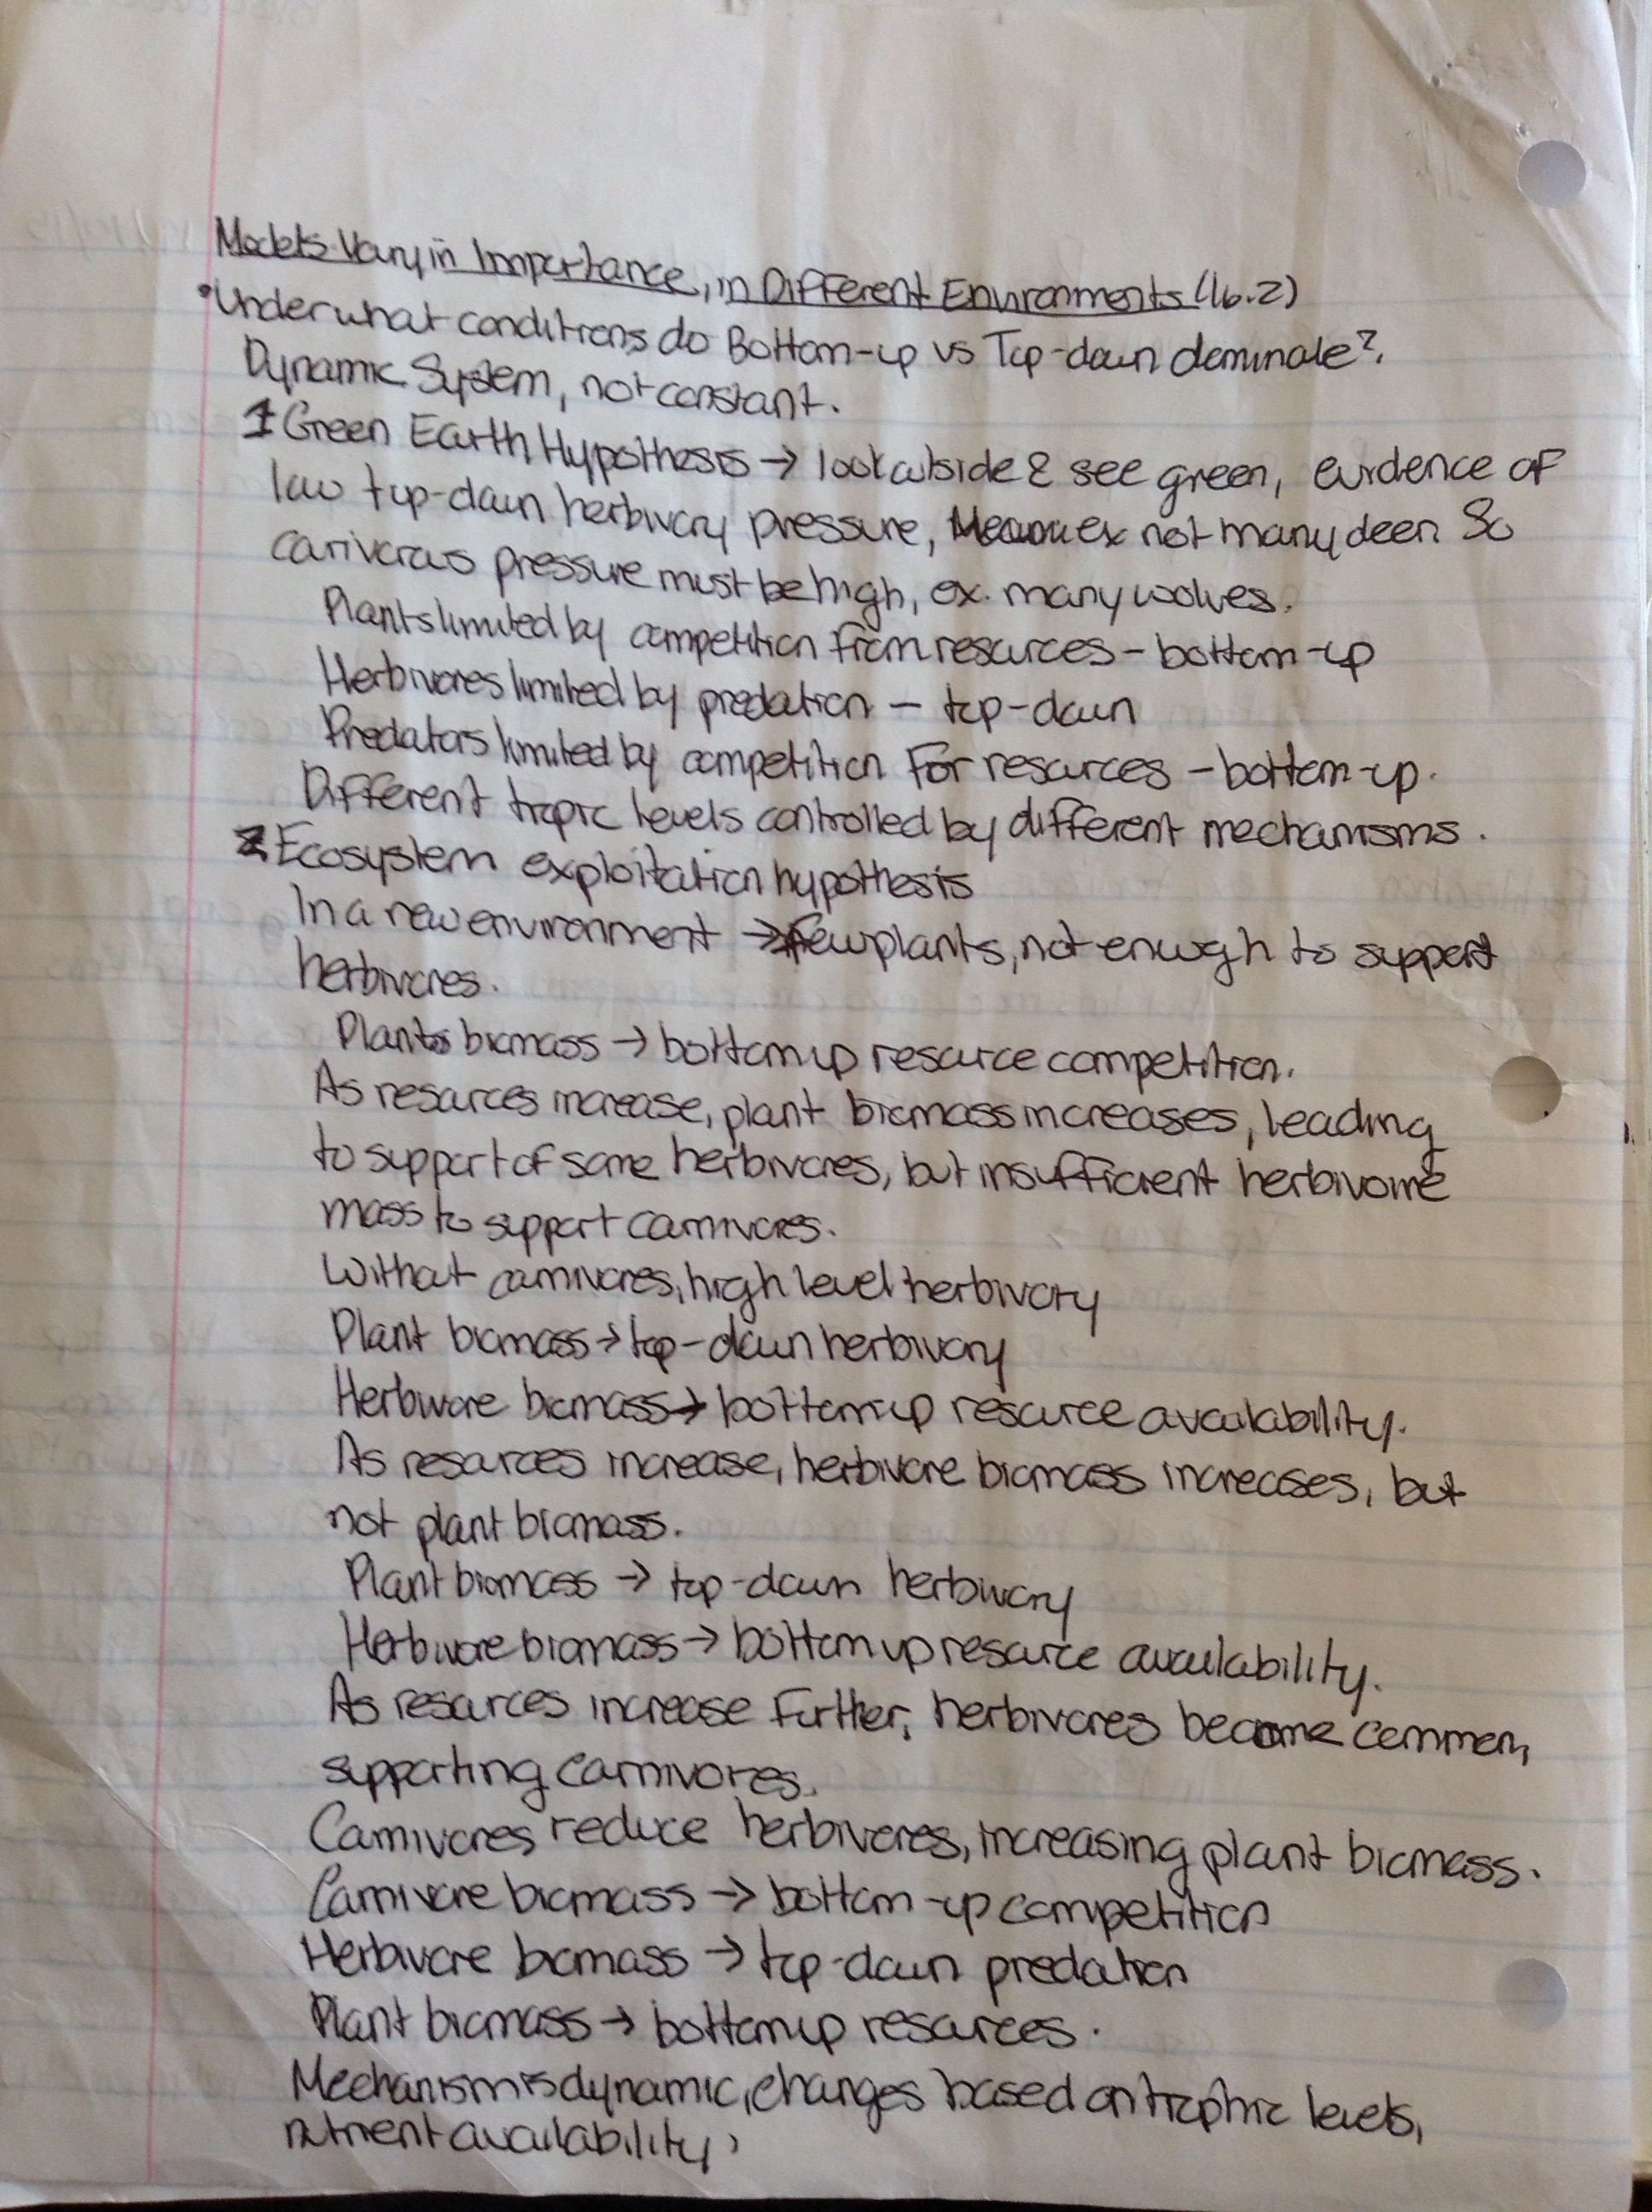 Models Vary in Importance, in Different Environments (16.2)
• Under what conditions do Bottom-up vs Top-down dominate?
Dynamic System, not constant.
1 Green Earth Hypothesis → look outside & see green, evidence of
low top-down herbivory pressure, ex not many deer. So
carivorous pressure must be high, ex. many wolves.
Plants limited by competition from resources - bottom-up
Herbivores limited by predation - top-down
Predators limited by competition for resources - bottom-up.
Different tropic levels controlled by different mechanisms.
2 Ecosystem exploitation hypothesis
In a new environment → few plants, not enough to support
herbivores.
Plants biomass → bottom up resource competition.
As resources increase, plant biomass increases, leading
to support of some herbivores, but insufficient herbivore
mass to support carnivores.
Without carnivores, high level herbivory
Plant biomass → top-down herbivory
Herbivore biomass → bottom-up resource availability.
As resources increase, herbivore biomass increases, but
not plant biomass.
Plant biomass → top-down herbivory
Herbivore biomass → bottom up resource availability.
As resources increase further, herbivores become common,
supporting carnivores.
Carnivores reduce herbivores, increasing plant biomass.
Carnivore biomass → bottom-up competition
Herbivore biomass → top-down predation
Plant biomass → bottom up resources.
Mechanism is dynamic, changes based on trophic levels,
nutrient availability,